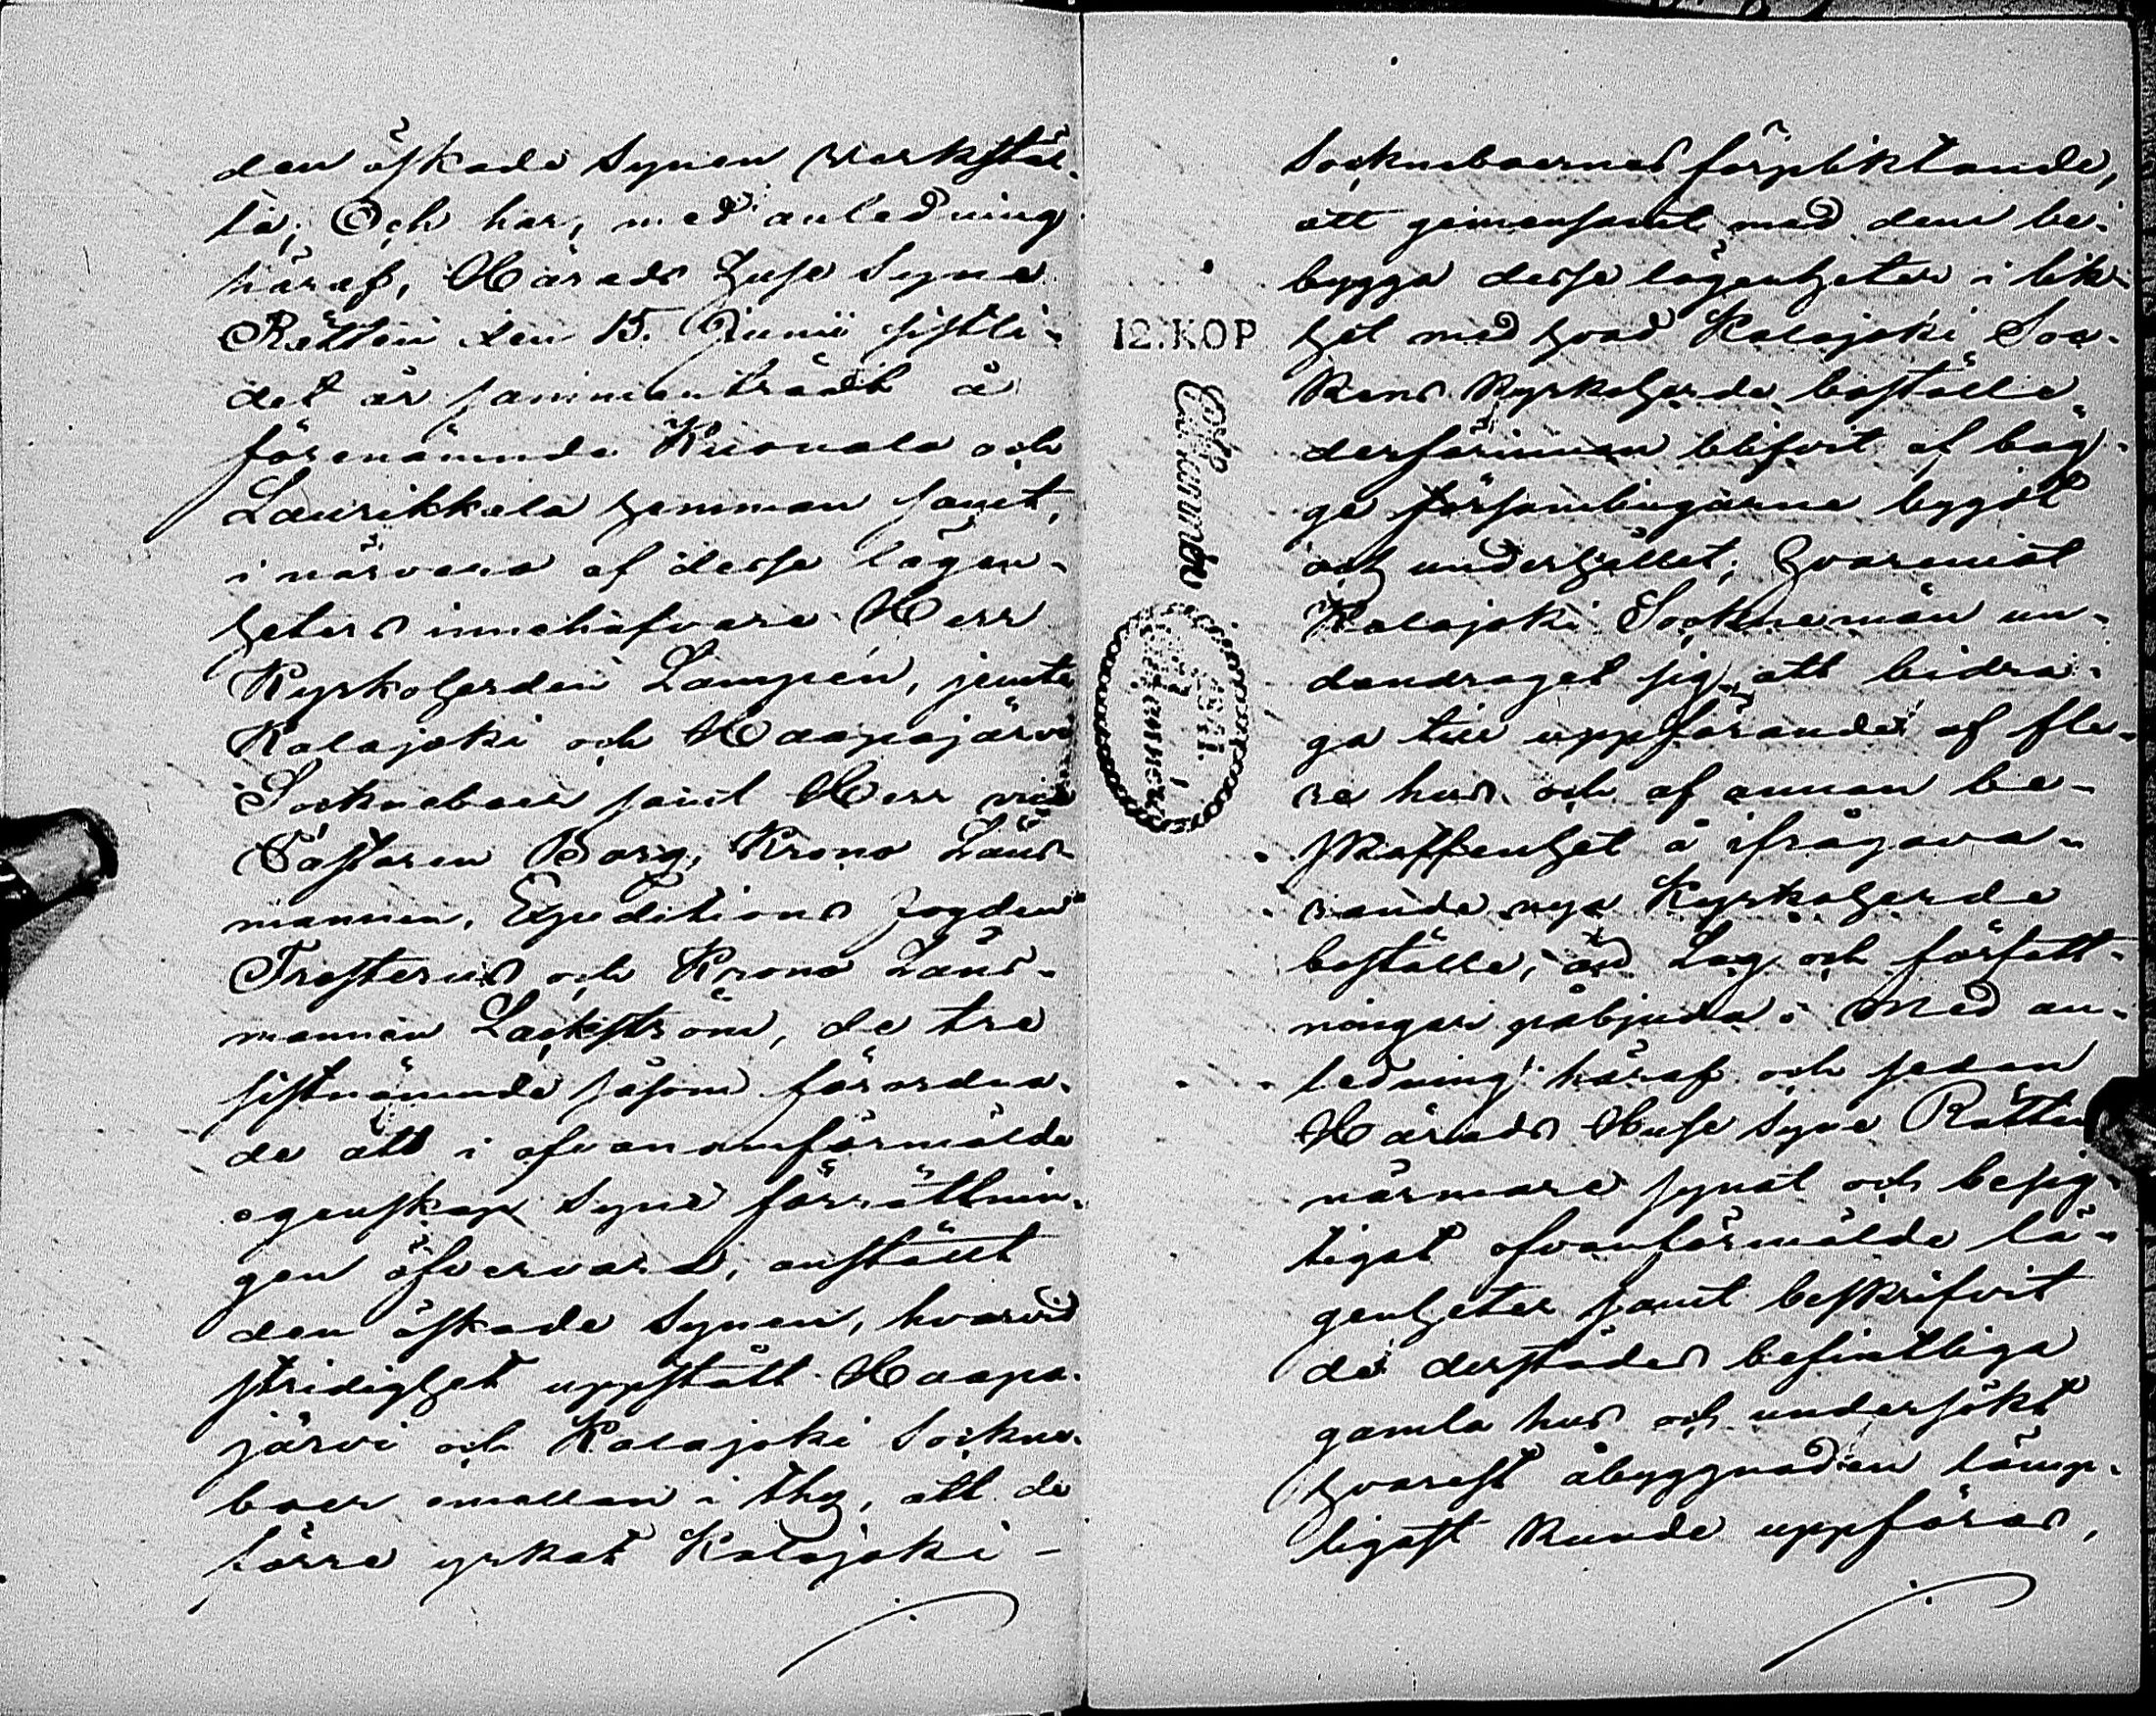 den äskade Synen verkstäl-
la; Och har, med anledning
häraf, Härads Huse Syne
Rätten den 15. Junii sistle-
det år sammanträdt å
förenämnde Kuonala och
Laurikkala hemman samt,
i närvaro af desse lägen-
heters innehafvare Herr
Kyrkoherden Lampén, jemte
Kalajoki och Haapajärvi
Sockneboer samt Herr vice
Pastoren Borg, Krono Läns-
mannen, Expeditions Fogden
Frosterus och Krono Läns-
mannen Lackström, de tre
sistnämnde såsom förordna-
de att i ofvanomförmälde
egenskap Syne förrättnin-
gen öfvervara, anstält
den äskade Synen, hvarvid
stridighet uppstått Haapa-
järvi och Kalajoki Sockne-
boer emellan i thy, att de
förre yrkat Kalajoki-
Socknboernes förpliktande,
att gemensamt med dem be-
bygga desse lägenheter i lik-
het med hvad Kalajoki Soc-
kens Kyrkoherde boställe
derförinnan blifvit af bäg-
ge församlingarne bygdt
och underhållet; hvaremot
Kalajoki Socknemän un-
dandraget sig att bidra-
ga till uppförandet af fle-
re hus och af annan be-
skaffenhet å ifrågava-
rande nya Kyrkoherde
boställe, än Lag och författ-
ningar påbjuda. Med an-
ledning häraf och sedan
Härads Huse Syne Rätten
närmare synat och besig-
tigat ofvanförmälde lä-
genheter samt beskrifvit
de derstädes befintliga
gamla hus och undersökt
hvarest åbyggnaden lämp-
ligast kunde uppföras,
12. KOP